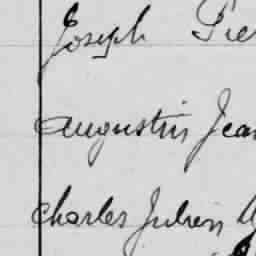 Joseph Pie
Augustin Jean
Charles Julien